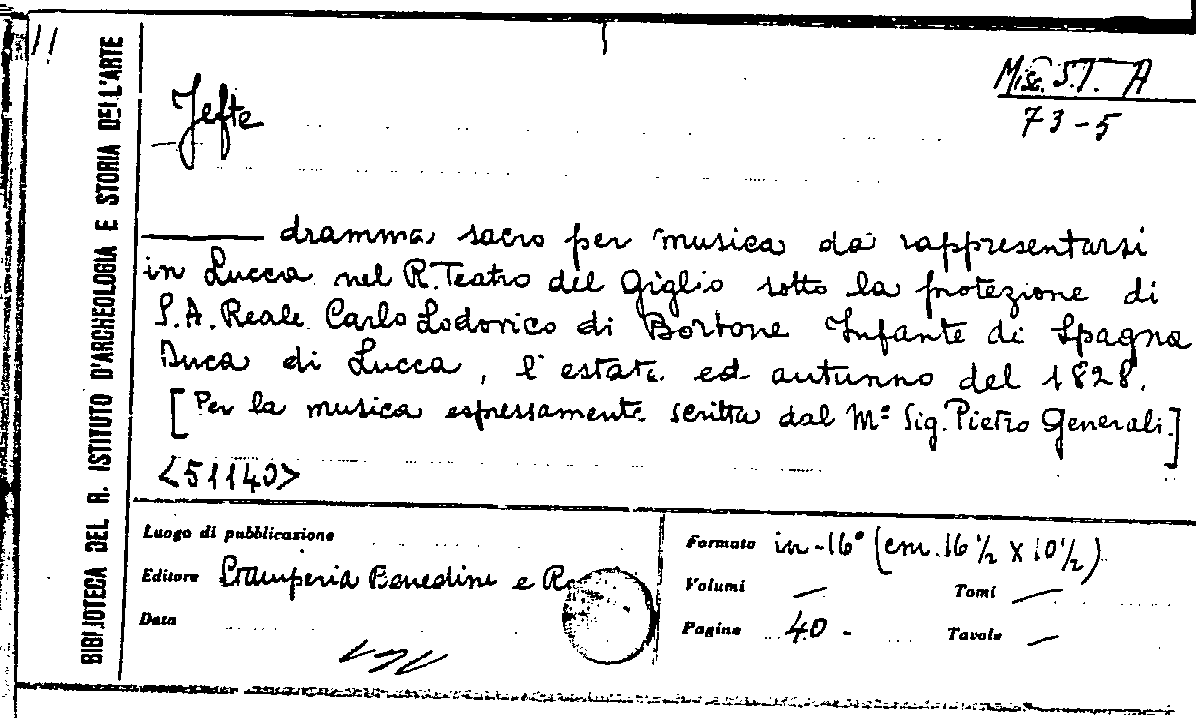 11
Misc. S.T. A
73-5
Jefte
BIBLIOTECA DEL R. ISTITUTO D'ARCHEOLOGIA E STORIA DELL'ARTE
dramma sacro per musica da rappresentarsi
in Lucca nel R. Teatro del Giglio sotto la protezione di
S.A. Reale Carlo Lodovico di Borbone Infante di Spagna
Duca di Lucca, l'estate ed autunno del 1828.
[Per la musica espressamente scritta dal Mº Sig. Pietro Generali.]
<51140>
Luogo di pubblicazione
Editore Stamperia Benedini e
Data
Formato in-16° (cm. 16 ½ x 10 ½)
Volumi — Tomi —
Pagine 40 - Tavole —